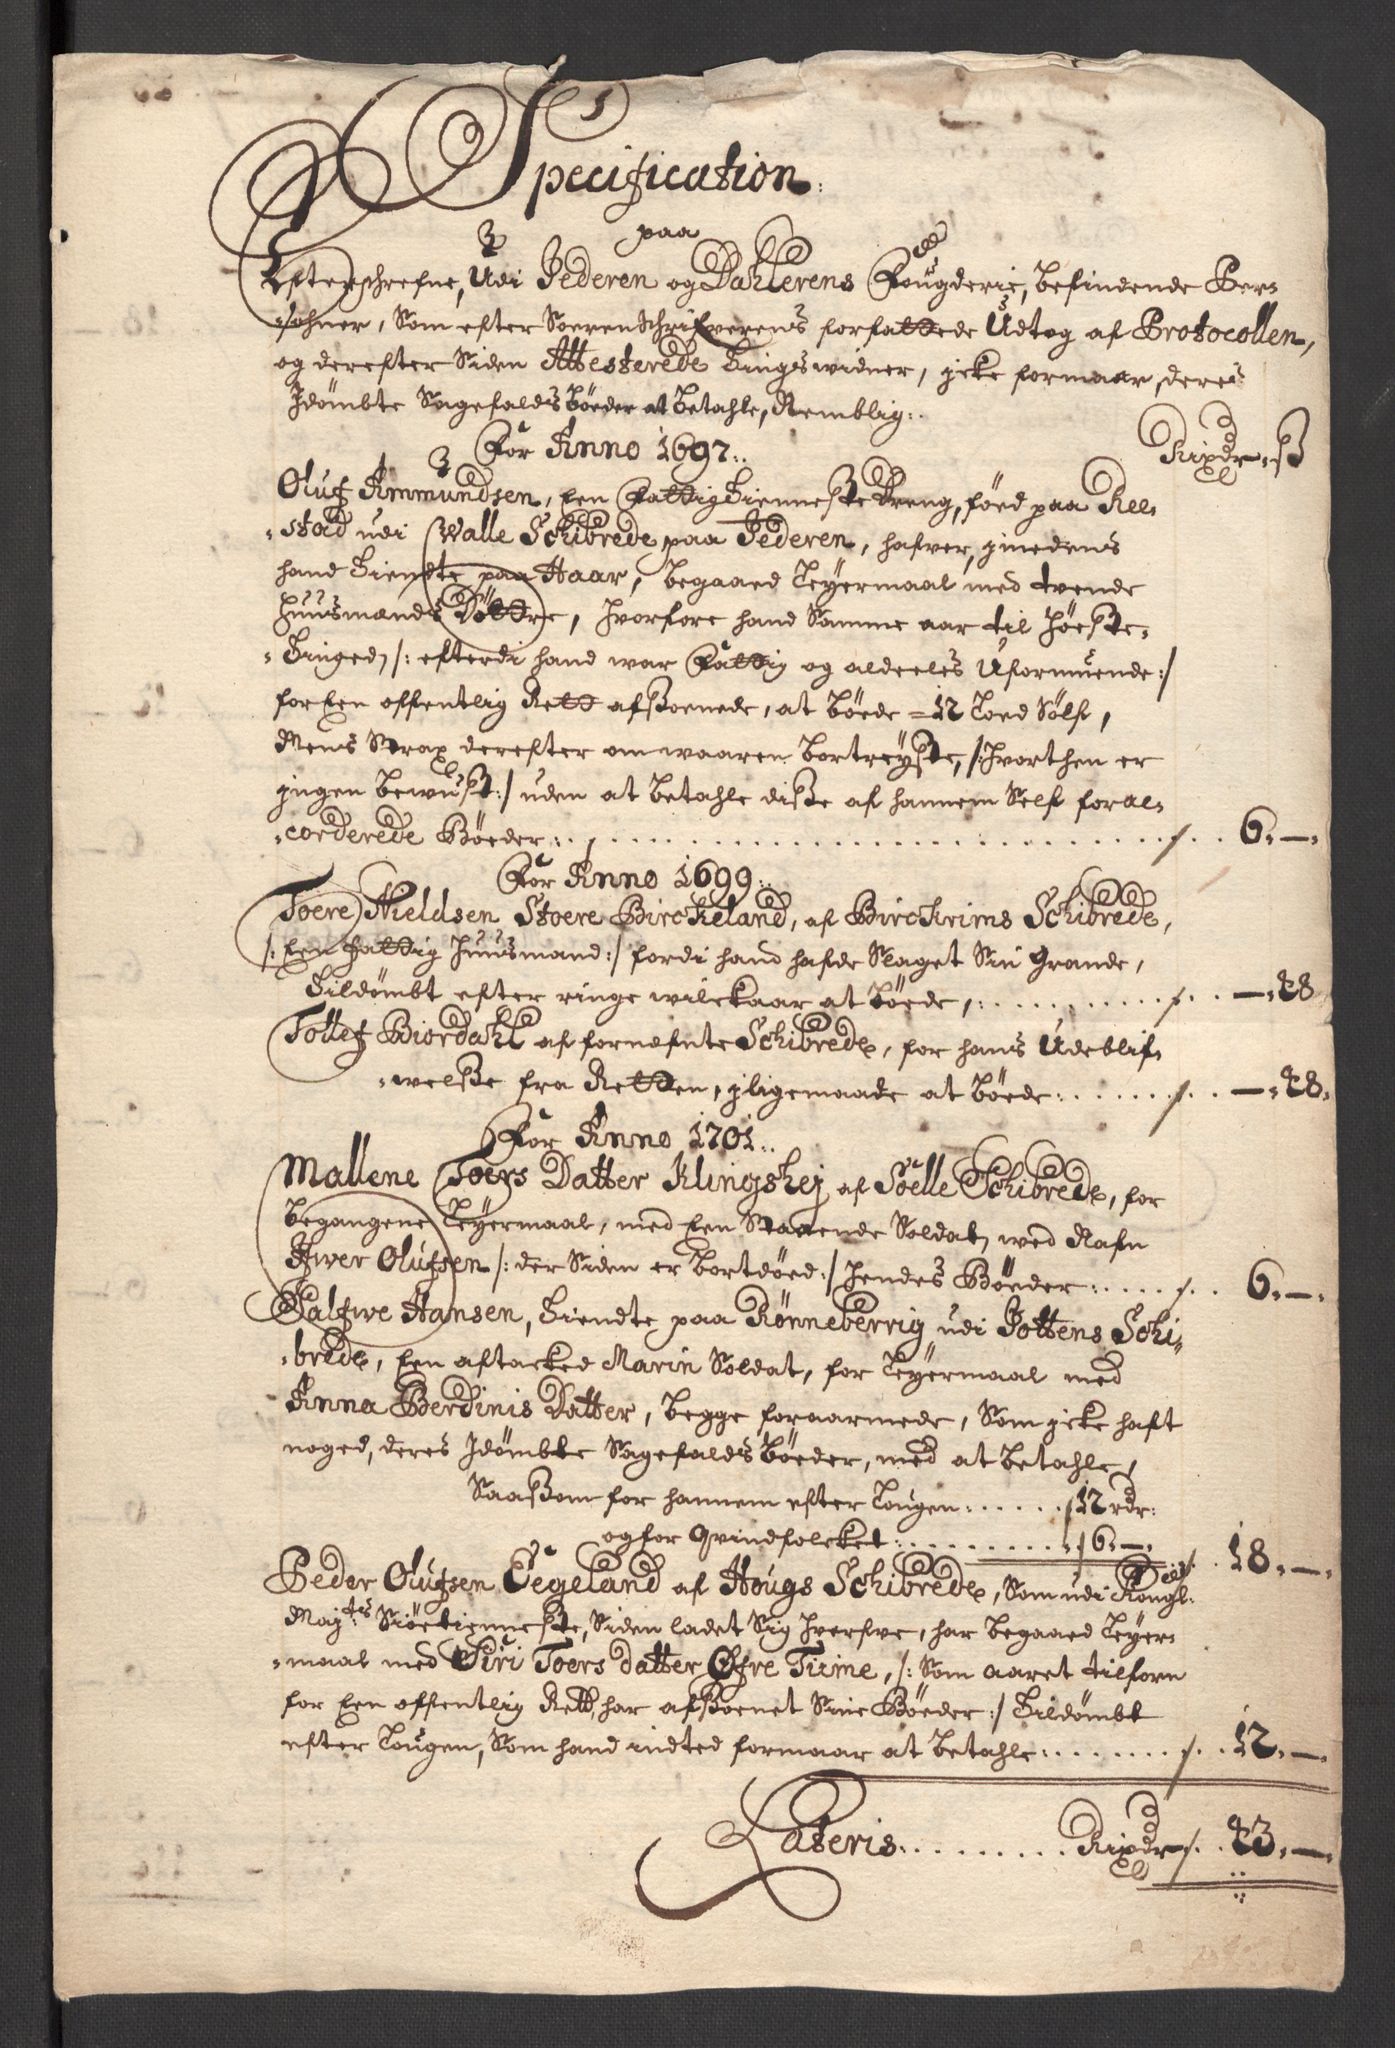 Specification
paa
Efterschrefne, Udi Jederen og Dahlerens Fougderie, befindende Per-
sohner, Som efter Soerenschrifverens forfattede Udtog af Protocollen,
og derefter Siden Attesterede Tingswidner, icke formaar, deres
Idömbte Sagefalds Böeder at betahle, Nemblig:
For Anno 1697.
Rixdr - ß
Oluf Ammundsen, Een Fattig Tienneste Dreng, föed paa Ree-
stad udi Walle Schibrede paa Jederen, hafver, imedens
hand Tiendte paa Haar, begaaed Leyermaal med tvende
Huusmands Döttre, hvorfore hand Samme aar til Höeste-
Tinged, /: efterdi hand war Fattig og aldeeles Uformuende :/
for Een offentlig Rett afsoenede, at böede = 12 Loed Sölf,
Mens Strax derefter om waaren bortreyste, /: hvorthen er
ingen bewust :/ uden at betahle disse af hannem Self foral-
corderede Böeder: . . . 6. —
For Anno 1699.
Toere Nieldsen Stoere Birckeland, af Birckrims Schibrede,
/: Een fattig Huusmand :/ fordi hand hafde Slaget Sin Grande,
Tildömbt efter ringe wilckaar at böede, . . . — 48
Tollef Biordahl af fornefnte Schibrede, for hans Udeblif-
welße fra Retten, iligemaade at böede: . . . — 48.
For Anno 1701.
Mallene Toers Datter Klingshej af Soelle Schibrede, for
begangene Leyermaal, med Een Staaende Soldat, wed Nafn
Iwer Olufsen /: der Siden er bortdöed :/ hendes Böeder: . . . 6. —
Salfwe Hansen, Tiendte paa Rönneberrig udi Jottens Schi-
brede, Een aftacked Marin Soldat, for Leyermaal med
Anna Berdinis Datter, begge forarmede, Som icke haft
noged, deres Idömbte Sagefalds böeder, med at betahle,
Saasom for hannem efter Lougen: . . . 12 rdr:
og for Qvindfolcket: . . . 6. — . . 18. —
Peder Olufsen Eegeland af Hougs Schibrede, Som udi Kongl:
Maj:ts Siöetienneste, Siden ladet Sig hverfve, har begaaed Leyer-
maal med Siri Toers Datter Öfre Tiime, /: Som aaret tilforn
for Een offentlig Rett, har afsoenet Sine Böeder :/ Tildömbt
efter Lougen, Som hand indted formaar at betahle: . . . 12. —
Lateris . . . Rixdr . . 43. —